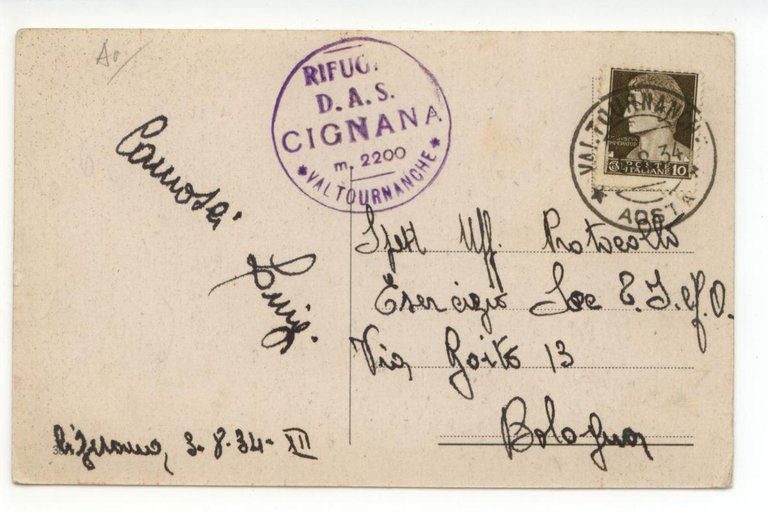 Ao/
RIFUG.
D.A.S.
CIGNANA
m. 2200
* VALTOURNANCHE *
VALTOURNANCHE
8 34
* AOSTA *
POSTE
ITALIANE 10
Luigi
Spett Uff. Protocollo
Esercizio Soc T.I.M.O.
Via Goito 13
Bologna
3-8-34-XII